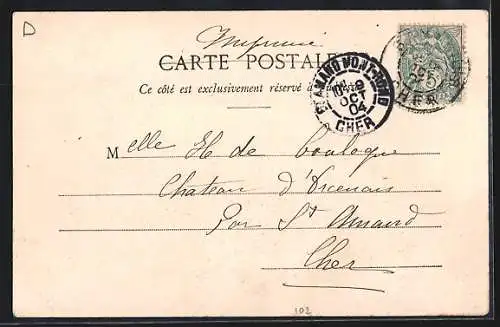 D
Imprimé
CARTE POSTALE
Ce côté est exclusivement réservé à
ST AMAND MONT-ROND
OCT
04
CHER
Melle H de Boulogne
Chateau d'Arcenais
Par St Amand
Cher
102